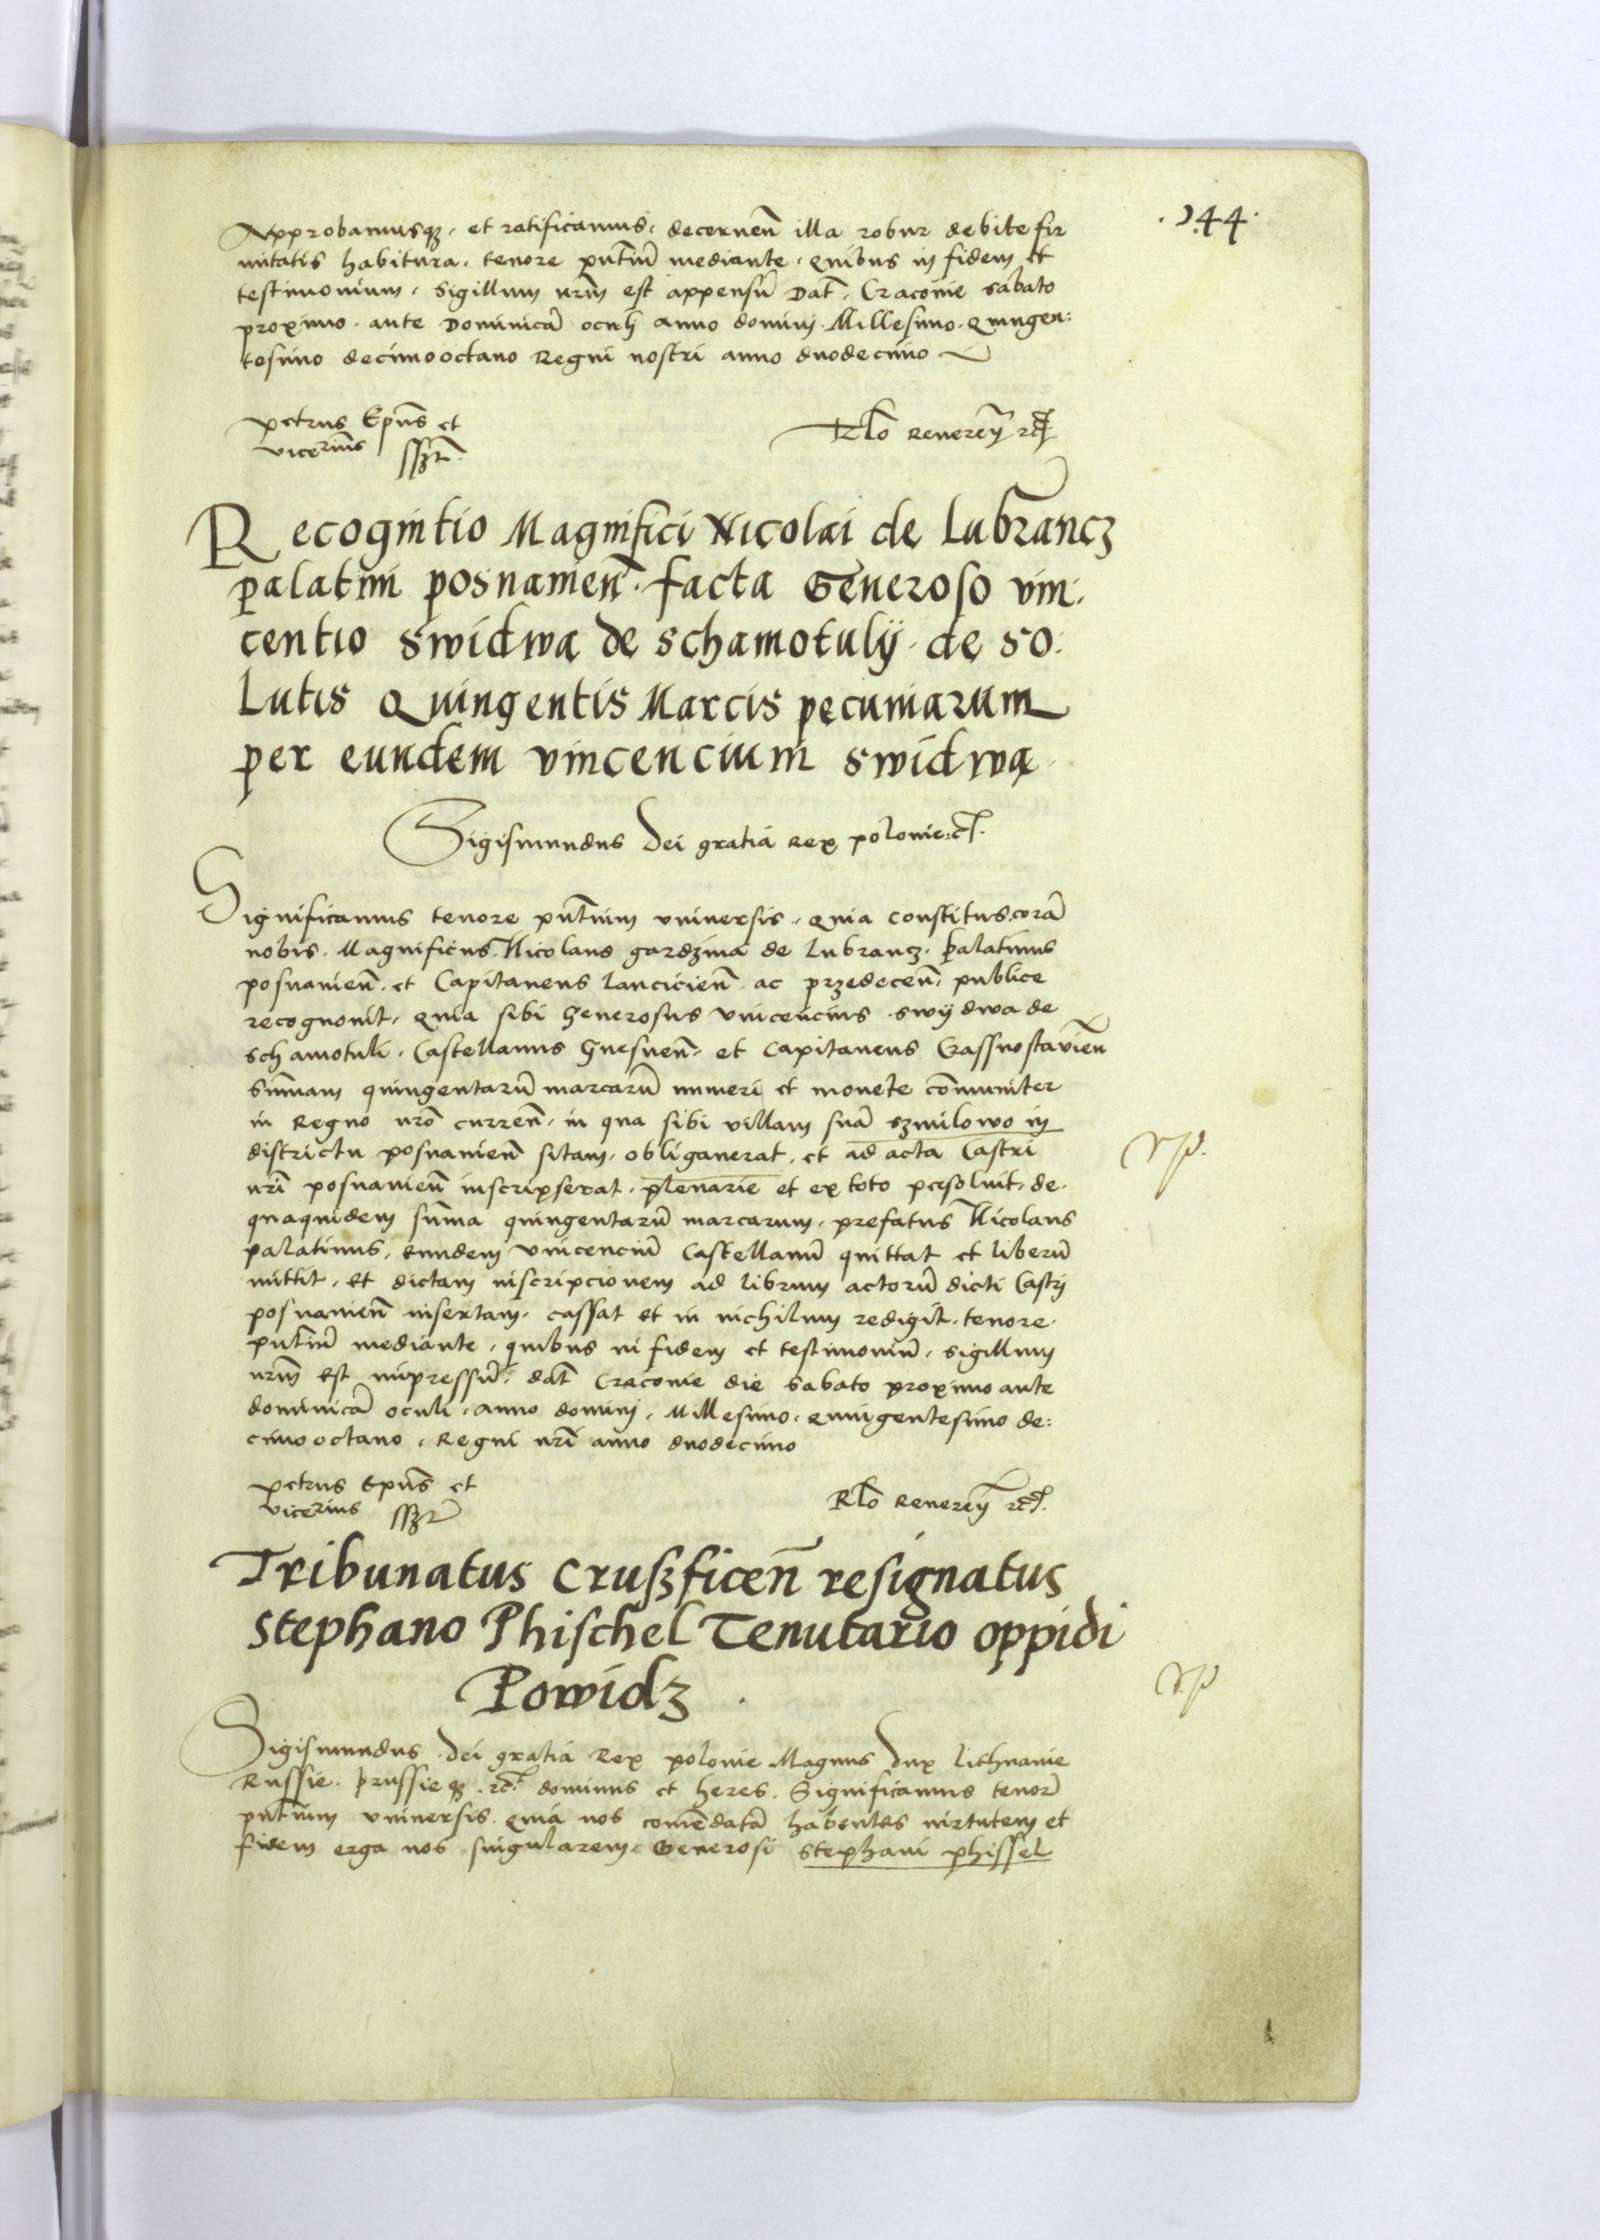 .244.
Approbamusq₃. et ratificamus. decerneñ illa robur debite fir
mitatis habitura. tenore pñtiũ mediante. Quibus in fidem et
testimonium. Sigillum nrm̃ est appensũ Dat̃. Cracovie sabato
proximo. ante Dominicã oculi Anno domini. Millesimo. Quingen:
tesimo decimooctavo Regni nostri anno duodecimo
Petrus Ep̃us et
vicerius sszt
Rl̃o Reverẽ
Recognitio Magnifici Nicolai de Lubrancz
palatini posnanieñ. facta Generoso vin:
centio Swidwa de Schamotulÿ. de so:
Lutis Quingentis Marcis pecuniarum
per eundem vincencium Swidwa
Sigismundus Dei gratia Rex polonie: ct.
Significamus tenore pñtium universis. quia constitus. corã
nobis. Magnificus. Nicolaus gardzina de lubrancz. palatinus
posnanieñ. et Capitaneus lancicieñ. ac przedeceñ. publice
recognovit. quia sibi Generosus vincencius. Swÿdwa de
Schamotuli. Castellanus Gnesneñ. et Capitaneus Crassnostavieñ
sũmam quingentarũ marcarũ numeri et monete cõmuniter
in Regno nrõ curreñ. in qua sibi villam suã szmilowo in
districtu posnanieñ sitam. obligaverat. et ad acta Castri
nrĩ posnanieñ inscripserat. plenarie et ex toto persolvit. de.
quaquidem sũma quingentarũ marcarum. prefatus Nicolaus
palatinus. eundem vincenciũ Castellanũ quittat et liberũ
mittit. et dictam inscripcionem ad librum actorũ dicti Castri
posnanieñ insertam. cassat et in nichilum redigit. tenore.
pñtiũ mediante. quibus in fidem et testimoniũ. sigillum
nrm̃ est impressũ. dat̃ Cracovie die sabato proximo ante
dominicã oculi. anno domini. Millesimo. quingentesimo de:
cimooctavo. Regni nrĩ anno duodecimo
Petrus Ep̃us et
vicerius sszt
Rl̃o Reverẽ
Tribunatus Crusszficeñ resignatus
Stephano Phischel Tenutario oppidi
Powidz
Sigismundus. Dei gratia Rex polonie Magnus Dux lithuanie
Russie. prussieq₃. rc̃. dominus et heres. Significamus tenorẽ
pñtium universis. quia nos comẽdatã habentes virtutem et
fidem erga nos singularem. Generosi Stephani phissel